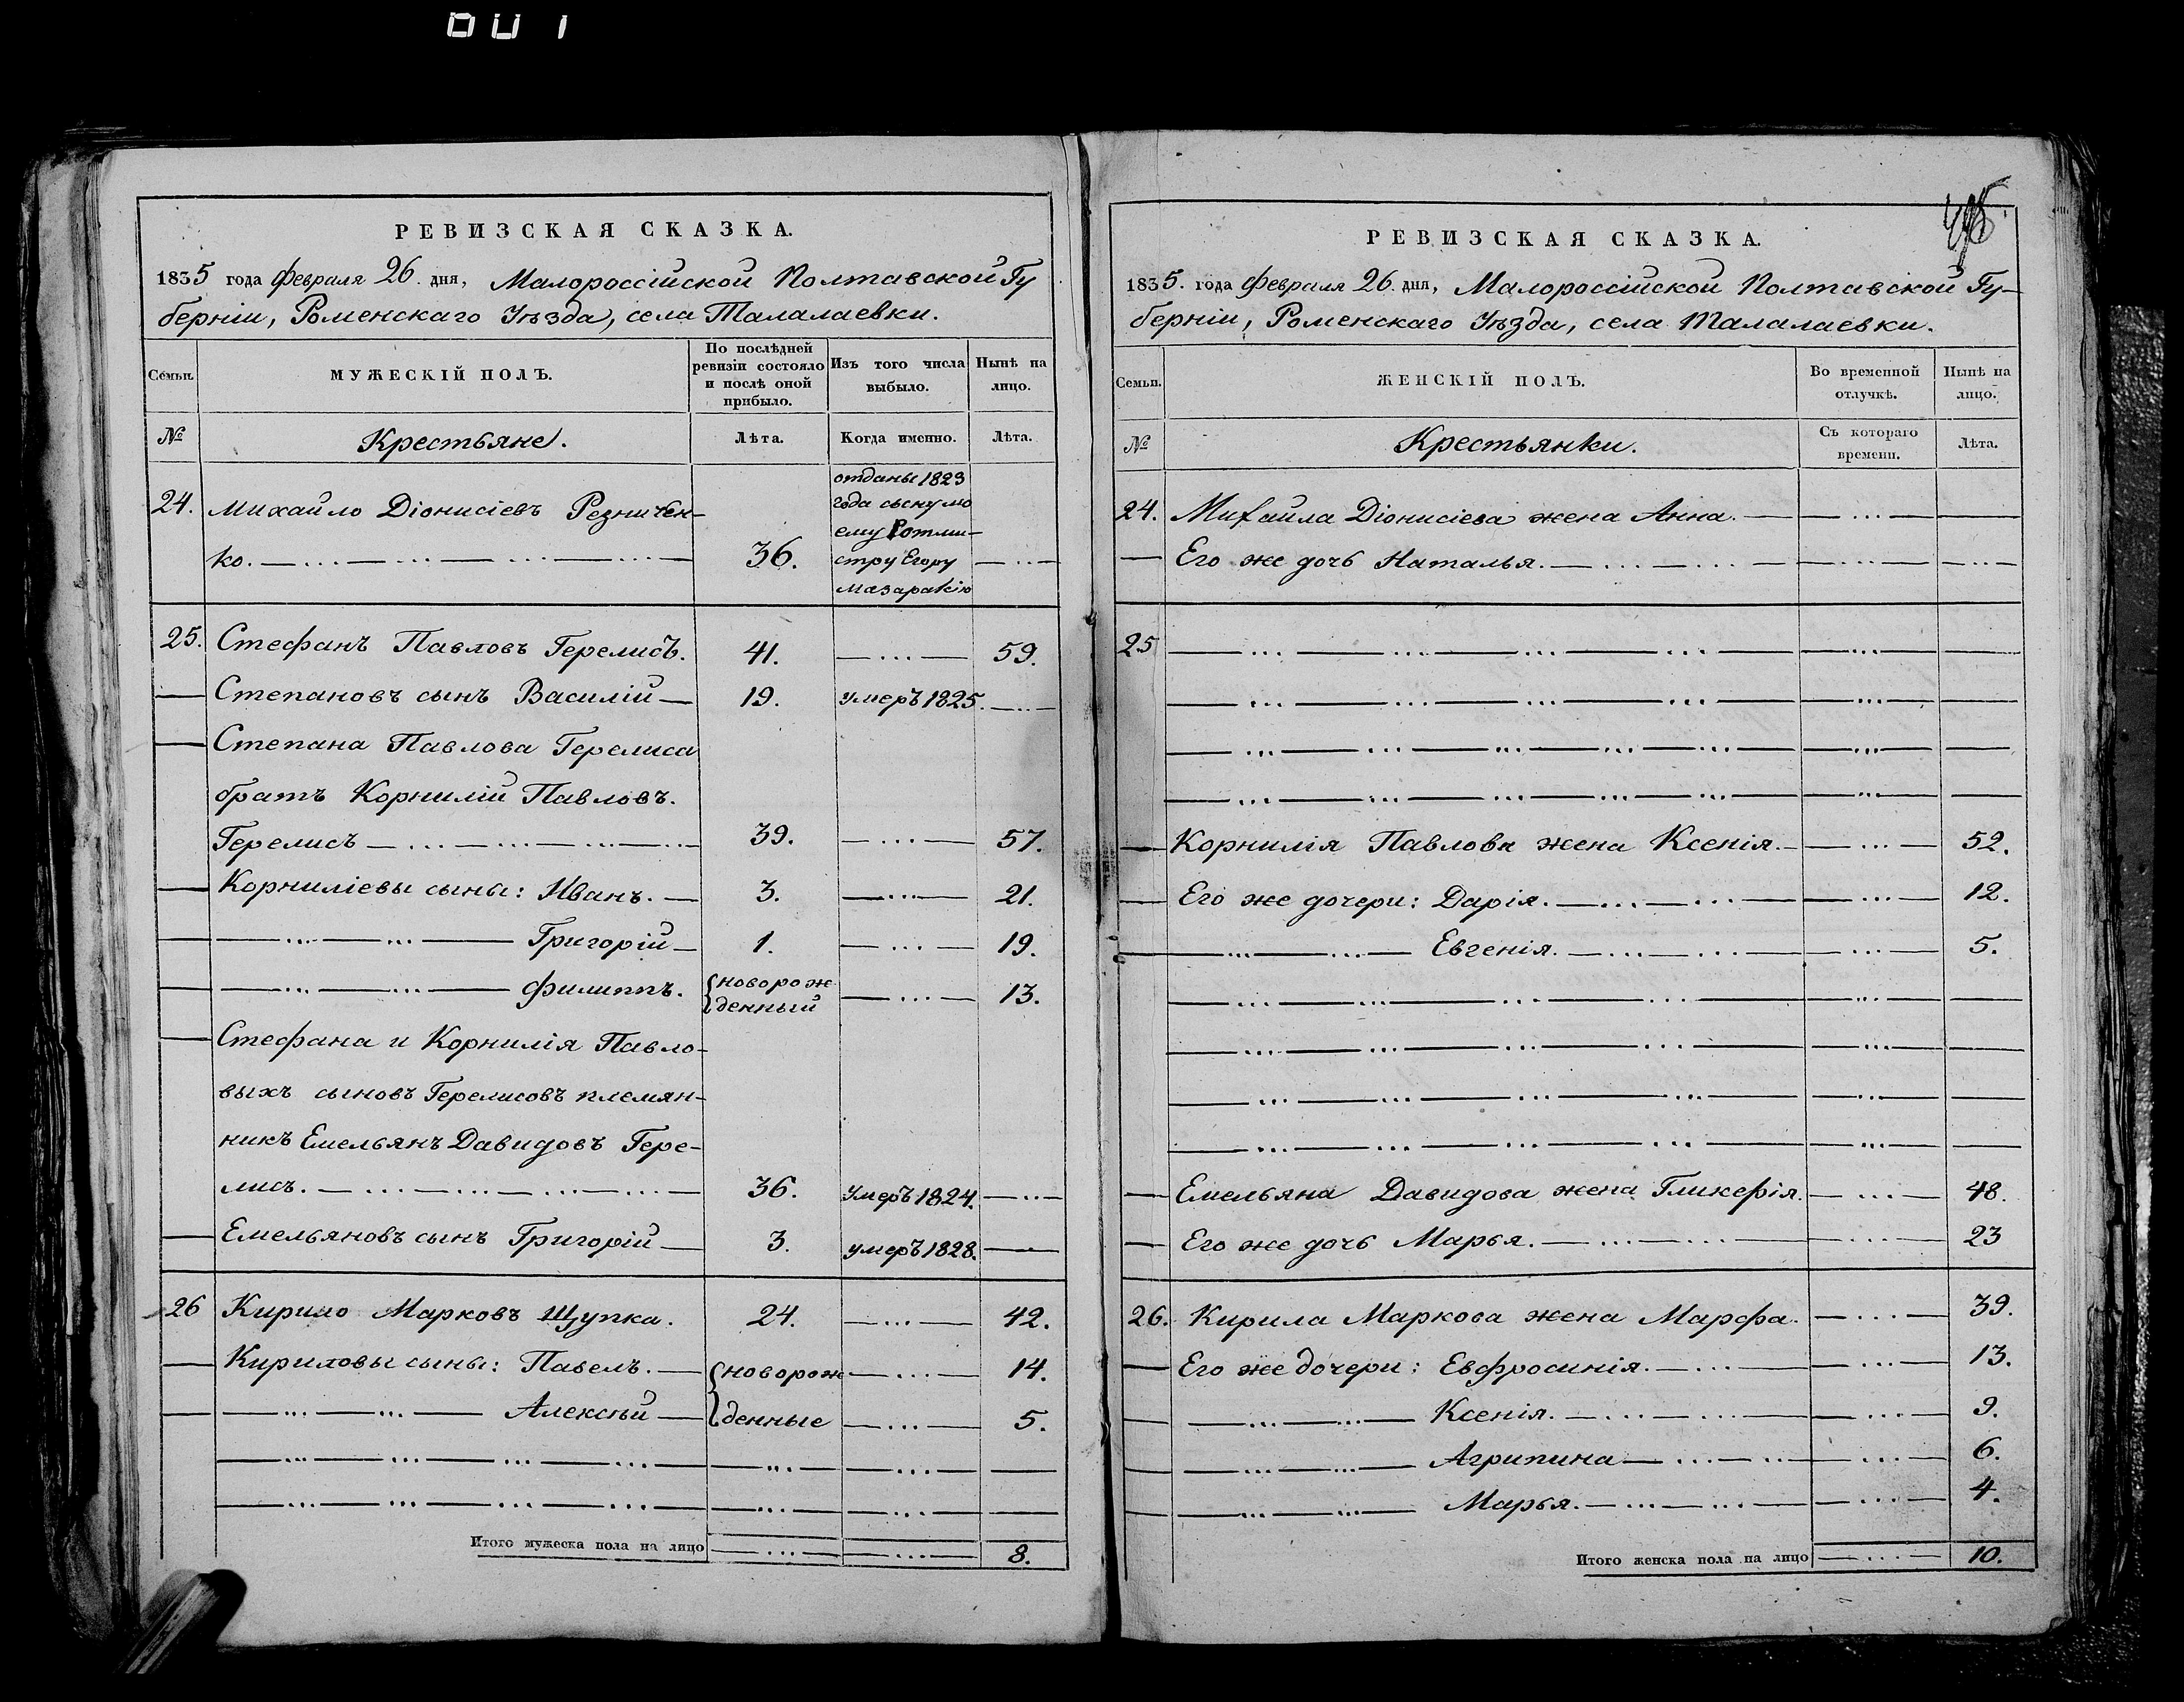 РЕВИЗСКАЯ СКАЗКА.
1835 года Февраля 26. дня, Малороссійской Полтавской Гу
берніи, Роменскаго Уѣзда, села Талалаевки.
Семьи.
МУЖЕСКІЙ ПОЛЪ.
По послѣдней ревизіи состояло и послѣ оной прибыло.
Изъ того числа выбыло.
Нынѣ на лицо.
№ Крестьяне. Лѣта. Когда именно. Лѣта.
отданы 1823
24. Михайло Діонисіевъ Резничен- года сыну мо
ему Ротми-
ко. 36. стру Егору
Мазаракію
25. Стефанъ Павловъ Герелисъ. 41. 59.
Степановъ сынъ Василій 19. умеръ 1825.
Степана Павлова Герелиса
братъ Корнилій Павловъ.
Герелисъ 39. 57.
Корниліевы сыны: Иванъ. 3. 21.
Григорій 1. 19.
Филиппъ. новорож
денный 13.
Стефана и Корнилія Павло-
выхъ сыновъ Герелисовъ племян-
никъ Емельянъ Давидовъ Гере-
лисъ. 36. Умеръ 1824.
Емельяновъ сынъ Григорій 3. умеръ 1828.
26 Кирило Марковъ Щупка. 24. 42.
Кириловы сыны: Павелъ. новорож 14.
Алексѣй денные 5.
Итого мужеска пола на лицо 8.
РЕВИЗСКАЯ СКАЗКА.
1835. года Февраля 26. дня, Малороссійской Полтавской Гу-
берніи, Роменскаго Уѣзда, села Талалаевки.
Семьи.
ЖЕНСКІЙ ПОЛЪ.
Во временной отлучкѣ.
Нынѣ на лицо.
№ Крестьянки. Съ котораго времени. Лѣта.
24. Михайла Діонисіева жена Анна.
Его же дочь Наталья.
25
Корнилія Павлова жена Ксенія. 52.
Его же дочери: Дарія. 12.
Евгенія. 5.
Емельяна Давидова жена Гликерія. 48.
Его же дочь Марья. 23
26. Кирила Маркова жена Марфа. 39.
Его же дочери: Евфросинія. 13.
Ксенія. 9.
Агрипина 6.
Марья. 4.
Итого женска пола на лицо 10.